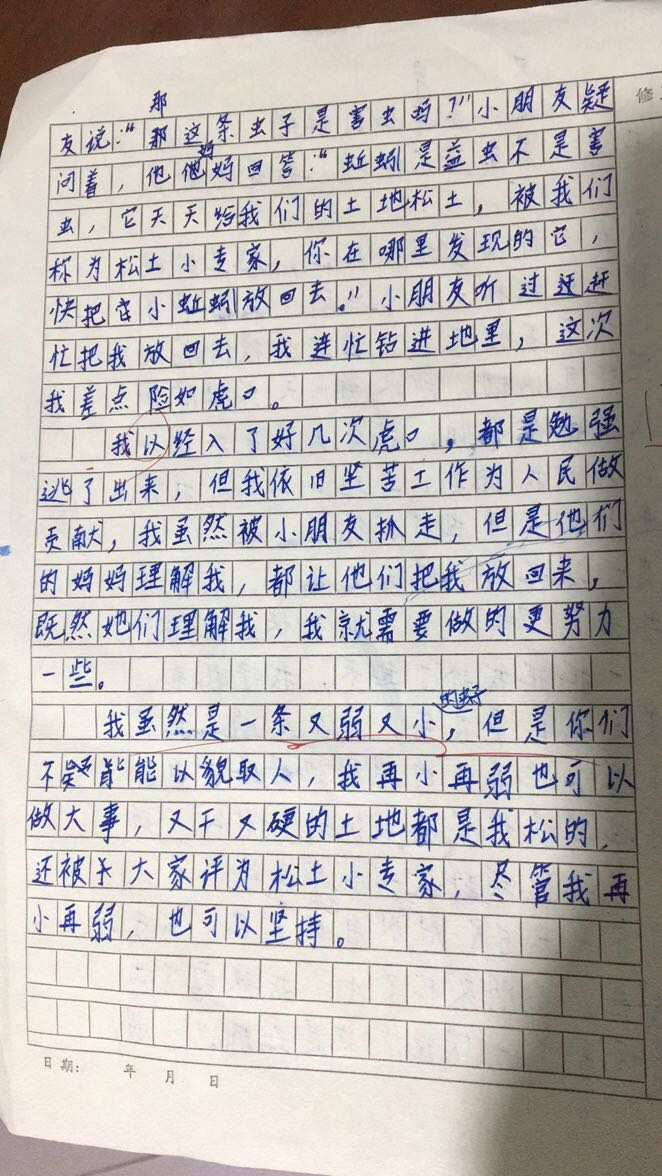 那
修
友说:“那这条虫子是害虫吗?”小朋友疑
问着,他他妈妈回答:“蚯蚓是益虫不是害
虫,它天天给我们的土地松土,被我们
称为松土小专家,你在哪里发现的它,
快把它小蚯蚓放回去。”小朋友听过迓赶
忙把我放回去,我连忙钻进地里,这次
我差点险如虎口。
我以经入了好几次虎口,都是勉强
逃了出来,但我依旧坚苦工作为人民做
贡献,我虽然被小朋友抓走,但是他们
的妈妈理解我,都让他们把我放回来,
既然她们理解我,我就需要做的更努力
一些。
我虽然是一条又弱又小的虫子,但是你们
不能以貌取人,我再小再弱也可以
做大事,又干又硬的土地都是我松的,
还被大家评为松土小专家,尽管我再
小再弱,也可以坚持。
日期: 年 月 日